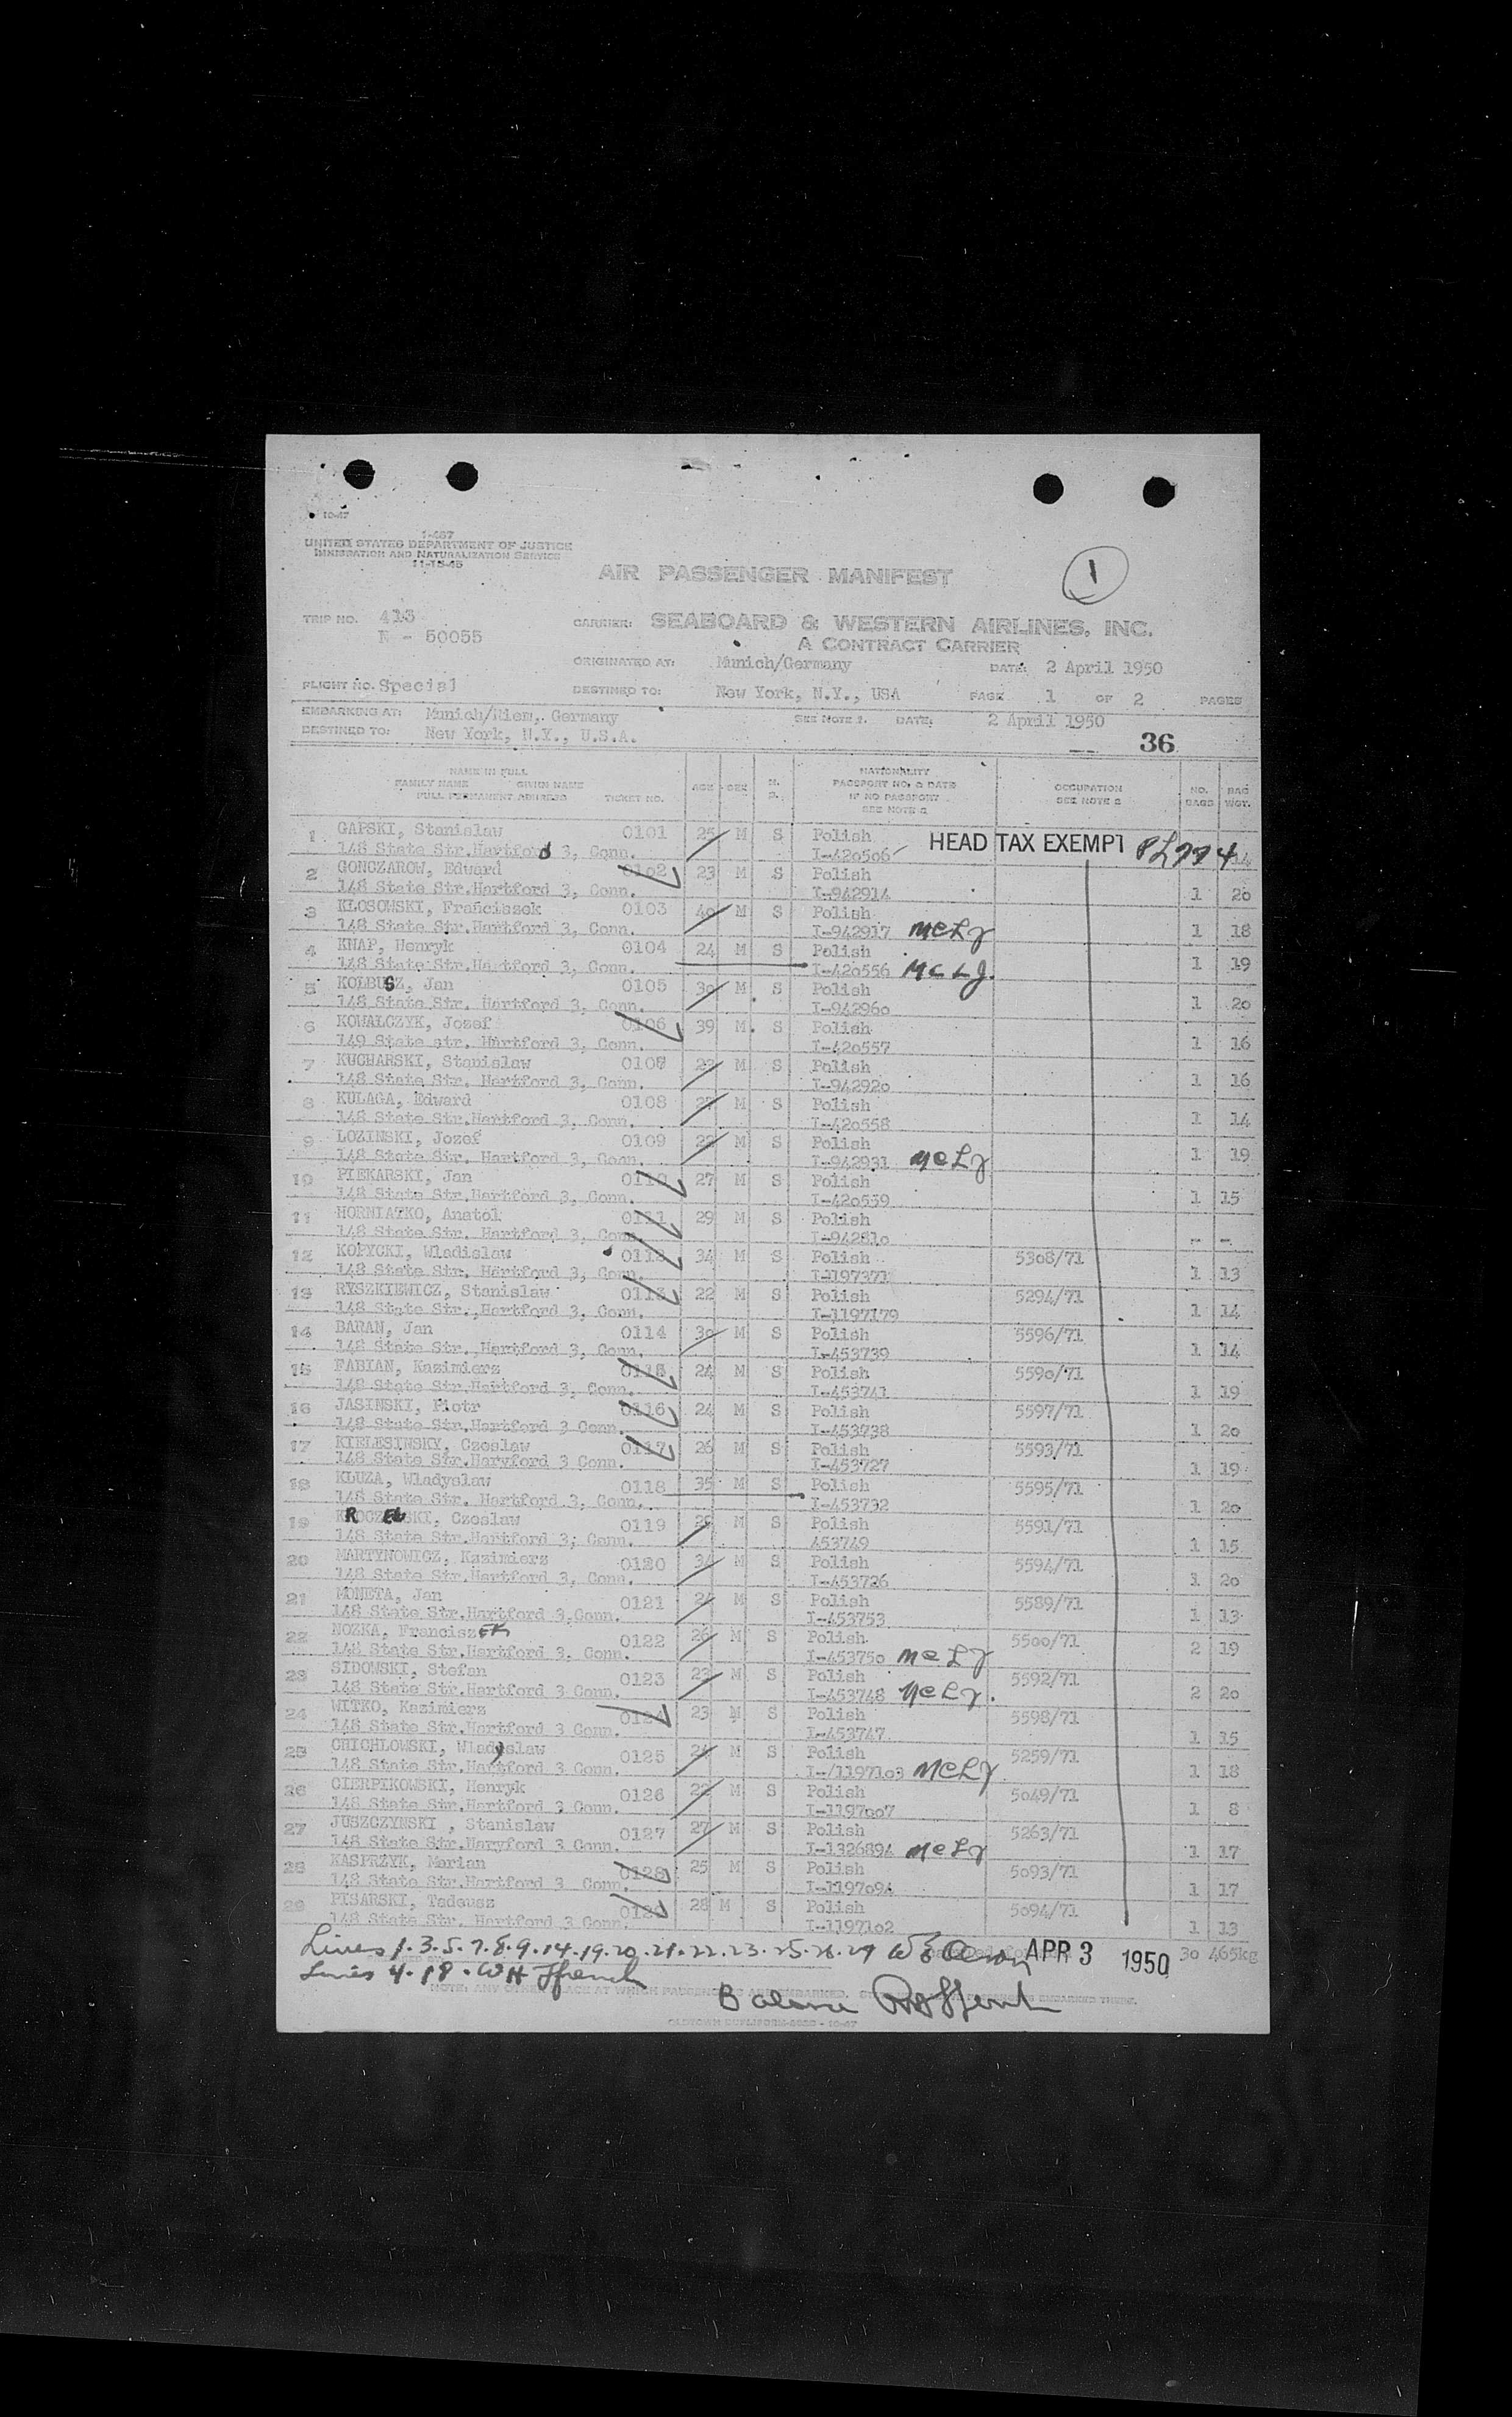 10-47
I-487
UNITED STATES DEPARTMENT OF JUSTICE
IMMIGRATION AND NATURALIZATION SERVICE
11-15-45
AIR PASSENGER MANIFEST
1
TRIP NO. 413
N - 50055
CARRIER: SEABOARD & WESTERN AIRLINES, INC.
A CONTRACT CARRIER
ORIGINATED AT: Munich/Germany DATE: 2 April 1950
FLIGHT NO. Special DESTINED TO: New York, N.Y., USA PAGE 1 OF 2 PAGES
EMBARKING AT: Munich/Riem, Germany SEE NOTE 1. DATE: 2 April 1950
DESTINED TO: New York, N.Y., U.S.A. 36
NAME IN FULL
FAMILY NAME GIVEN NAME
FULL PERMANENT ADDRESS TICKET NO. AGE SEX M. S. NATIONALITY PASSPORT NO. & DATE IF NO PASSPORT SEE NOTE 2 OCCUPATION SEE NOTE 2 NO. BAGS BAG WGT.
1 GAPSKI, Stanislaw 0101 25 M S Polish
148 State Str.Hartford 3, Conn. I-420506 HEAD TAX EXEMPT PL 774 14
2 GONCZAROW, Edward 0102 23 M S Polish
148 State Str.Hartford 3, Conn. I-942914 1 20
3 KLOSOWSKI, Franciszek 0103 40 M S Polish
148 State Str.Hartford 3, Conn. I-942917 McLJ 1 18
4 KNAP, Henryk 0104 24 M S Polish
148 State Str.Hartford 3, Conn. I-420556 McLJ. 1 19
5 KOLBUSZ, Jan 0105 30 M S Polish
148 State Str. Hartford 3, Conn. I-942960 1 20
6 KOWALCZYK, Jozef 0106 39 M S Polish
149 State str. Hartford 3, Conn. I-420557 1 16
7 KUCHARSKI, Stanislaw 0107 22 M S Polish
148 State Str. Hartford 3, Conn. I-942920 1 16
8 KULAGA, Edward 0108 27 M S Polish
148 State Str.Hartford 3, Conn. I-420558 1 14
9 LOZINSKI, Jozef 0109 22 M S Polish
148 State Str. Hartford 3, Conn. I-942931 McLJ 1 19
10 PIEKARSKI, Jan 0110 27 M S Polish
148 State Str.Hartford 3, Conn. I-420559 1 15
11 HORNIATKO, Anatol 0111 29 M S Polish
148 State Str. Hartford 3, Conn. I-942810 - -
12 KOPYCKI, Wladislaw 0112 34 M S Polish 5308/71
148 State Str. Hartford 3, Conn. I-1197371 1 13
13 RYSZKIEWICZ, Stanislaw 0113 22 M S Polish 5294/71
148 State Str.,Hartford 3, Conn. I-1197179 1 14
14 BARAN, Jan 0114 30 M S Polish 5596/71
148 State Str.,Hartford 3, Conn. I-453739 1 14
15 FABIAN, Kazimierz 0115 24 M S Polish 5590/71
148 State Str.Hartford 3, Conn. I-453741 1 19
16 JASINSKI, Piotr 0116 24 M S Polish 5597/71
148 State Str.Hartford 3 Conn. I-453738 1 20
17 KIELESINSKY, Czeslaw 0117 26 M S Polish 5593/71
148 State Str.Haryford 3 Conn. I-453727 1 19
18 KLUZA, Wladyslaw 0118 35 M S Polish 5595/71
148 State Str. Hartford 3, Conn. I-453732 1 20
19 KROCZEWSKI, Czeslaw 0119 M S Polish 5591/71
148 State Str.Hartford 3; Conn. 453749 1 15
20 MARTYNOWICZ, Kazimierz 0120 34 M S Polish 5594/71
148 State Str.Hartford 3, Conn. I-453726 1 20
21 MONETA, Jan 0121 M S Polish 5589/71
148 State Str.Hartford 3,Conn. I-453753 1 13
22 NOZKA, Franciszek 0122 26 M S Polish 5500/71
148 State Str.Hartford 3, Conn. I-453750 McLJ 2 19
23 SIDOWSKI, Stefan 0123 23 M S Polish 5592/71
148 State Str.Hartford 3 Conn. I-453748 McLJ. 2 20
24 WITKO, Kazimierz 0124 23 M S Polish 5598/71
148 State Str.Hartford 3 Conn. I-453747 1 15
25 CHICHLOWSKI, Wladyslaw 0125 24 M S Polish 5259/71
148 State Str.Hartford 3 Conn. I-/1197103 McLJ 1 18
26 CIERPIKOWSKI, Henryk 0126 22 M S Polish 5049/71
148 State Str.Hartford 3 Conn. I-1197007 1 8
27 JUSZCZYNSKI , Stanislaw 0127 27 M S Polish 5263/71
148 State Str.Haryford 3 Conn. I-1326894 McLJ 1 17
28 KASPRZYK, Marian 0128 25 M S Polish 5093/71
148 State Str.Hartford 3 Conn. I-1197094 1 17
29 PISARSKI, Tadeusz 0129 28 M S Polish 5094/71
148 State Str. Hartford 3 Conn. I-1197102 1 13
Lines 1.3.5.7.8.9.14.19.20.21.22.23.25.26.27 W E Olson APR 3 1950 30 465kg
Lines 4.18. WH Ffrench
NOTE: ANY OTHER PLACE AT WHICH PASSENGERS ARE EMBARKED.
Balance
OLDTOWN DUPLIFORM - 10-47